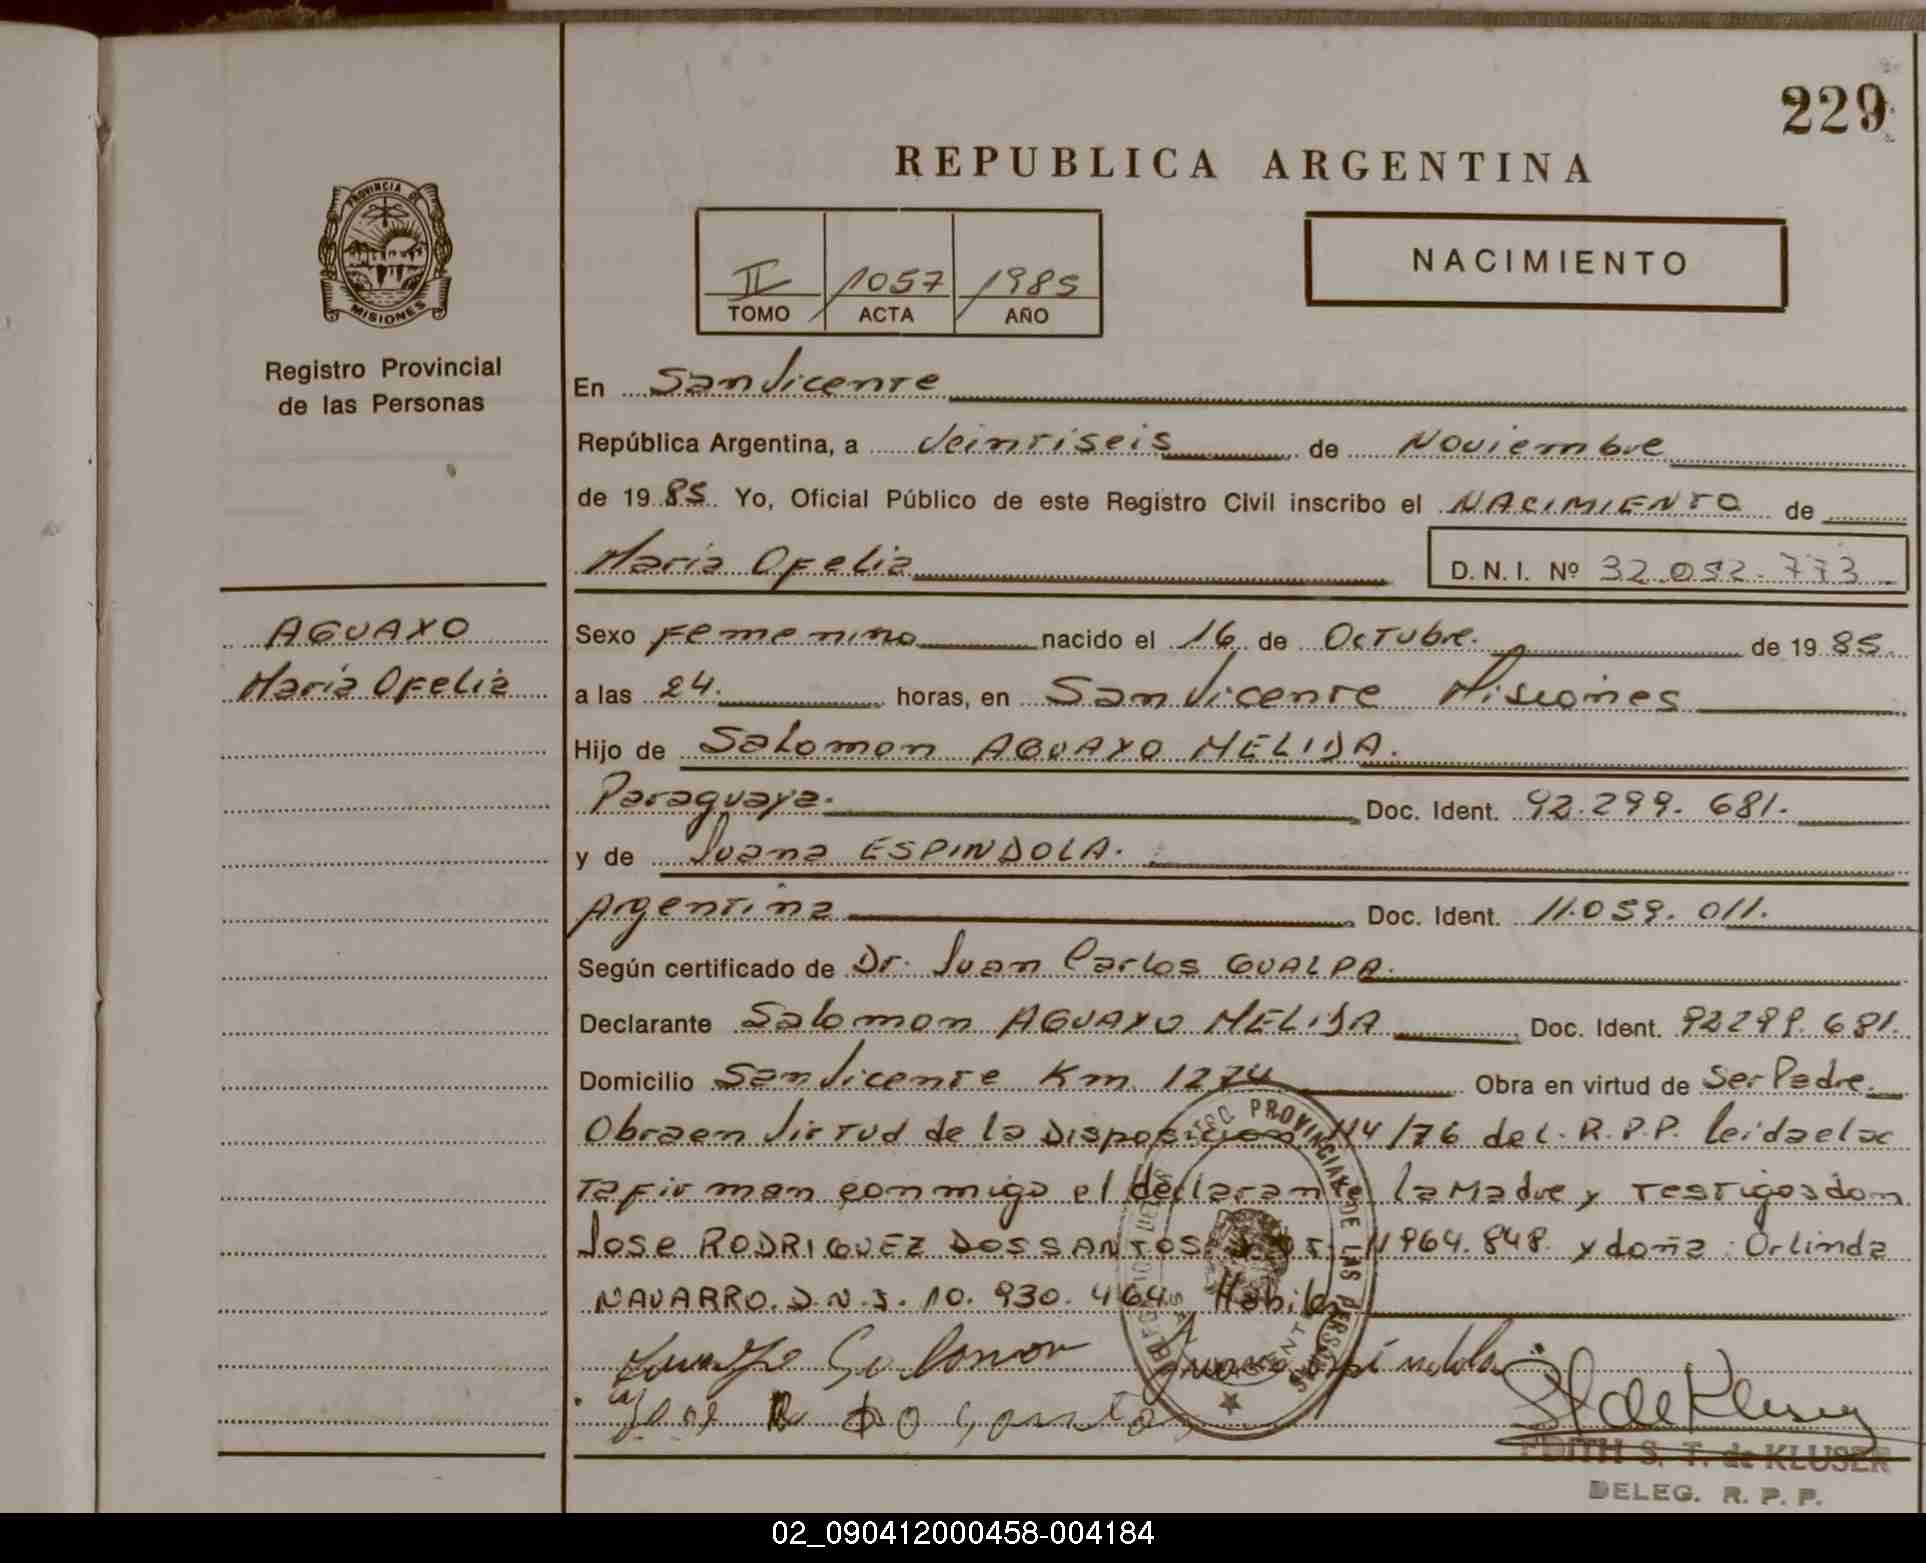 229
REPUBLICA ARGENTINA
PROVINCIA DE
MISIONES
Registro Provincial
de las Personas
II 1057 1985
TOMO ACTA AÑO
NACIMIENTO
En San Vicente
República Argentina, a Veintiseis de Noviembre
de 1985 Yo, Oficial Público de este Registro Civil inscribo el NACIMIENTO de
Maria Ofelia D. N. I. Nº 32.052.773
AGUAYO
Maria Ofelia
Sexo Femenino nacido el 16 de Octubre. de 1985.
a las 24. horas, en San Vicente Misiones
Hijo de Salomon AGUAYO MELIDA.
Paraguaya. Doc. Ident. 92.299.681.
y de Juana ESPINDOLA.
Argentina Doc. Ident. 11.059.011.
Según certificado de Dr. Juan Carlos GUALPA.
Declarante Salomon AGUAYO MELIDA Doc. Ident. 92299.681.
Domicilio San Vicente Km 1274 Obra en virtud de Ser Padre.
Obra en Virtud de la Disposicion 114/76 del. R.P.P. leida el ac
ta firman conmigo el declarante la Madre y testigos don
Jose RODRIGUEZ DOSSANTOS 11964.848. y doña Orlinda
NAVARRO. D.N.I. 10.930.464 Habiles
REGISTRO PROVINCIAL DE LAS PERSONAS
EDITH S. T. de KLUSER
DELEG. R. P. P.
02_090412000458-004184